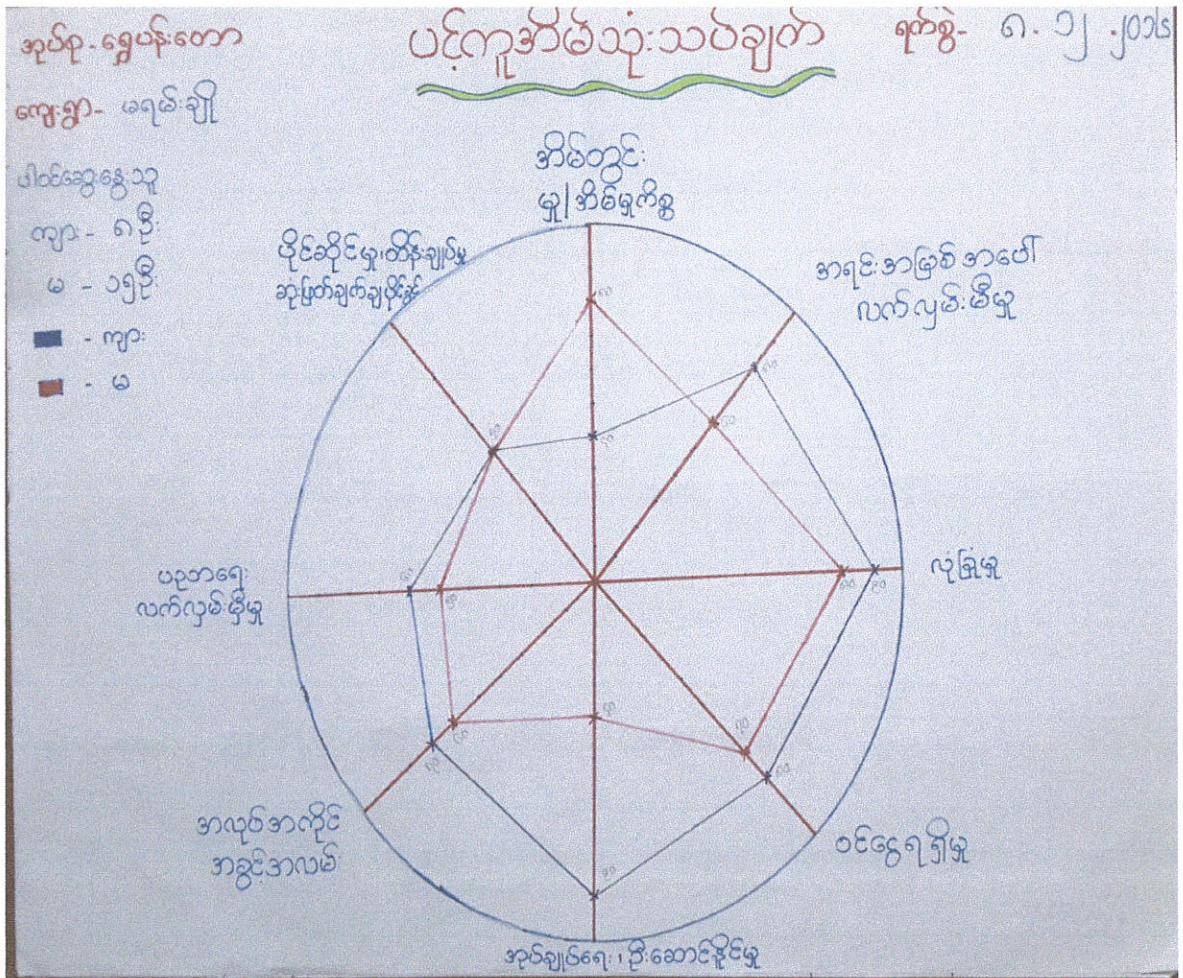 အုပ်စု - ရွှေပန်းတော
ပင့်ကူအိမ်သုံးသပ်ချက်
ရက်စွဲ- ၈.၁၂.၂၀၁၆
ကျေးရွာ- မရမ်းချို
ပါဝင်ဆွေးနွေးသူ
ကျား - ၈ ဦး
မ - ၁၅ ဦး
- ကျား
- မ
အိမ်တွင်း
မှု/အိမ်မှုကိစ္စ
အရင်းအမြစ်အပေါ်
လက်လှမ်းမီမှု
လုံခြုံမှု
ဝင်ငွေရရှိမှု
အုပ်ချုပ်ရေး၊ ဦးဆောင်နိုင်မှု
အလုပ်အကိုင်
အခွင့်အလမ်း
ပညာရေး
လက်လှမ်းမှီမှု
ပိုင်ဆိုင်မှု၊ ထိန်းချုပ်မှု
ဆုံးဖြတ်ချက်ချပိုင်ခွင့်